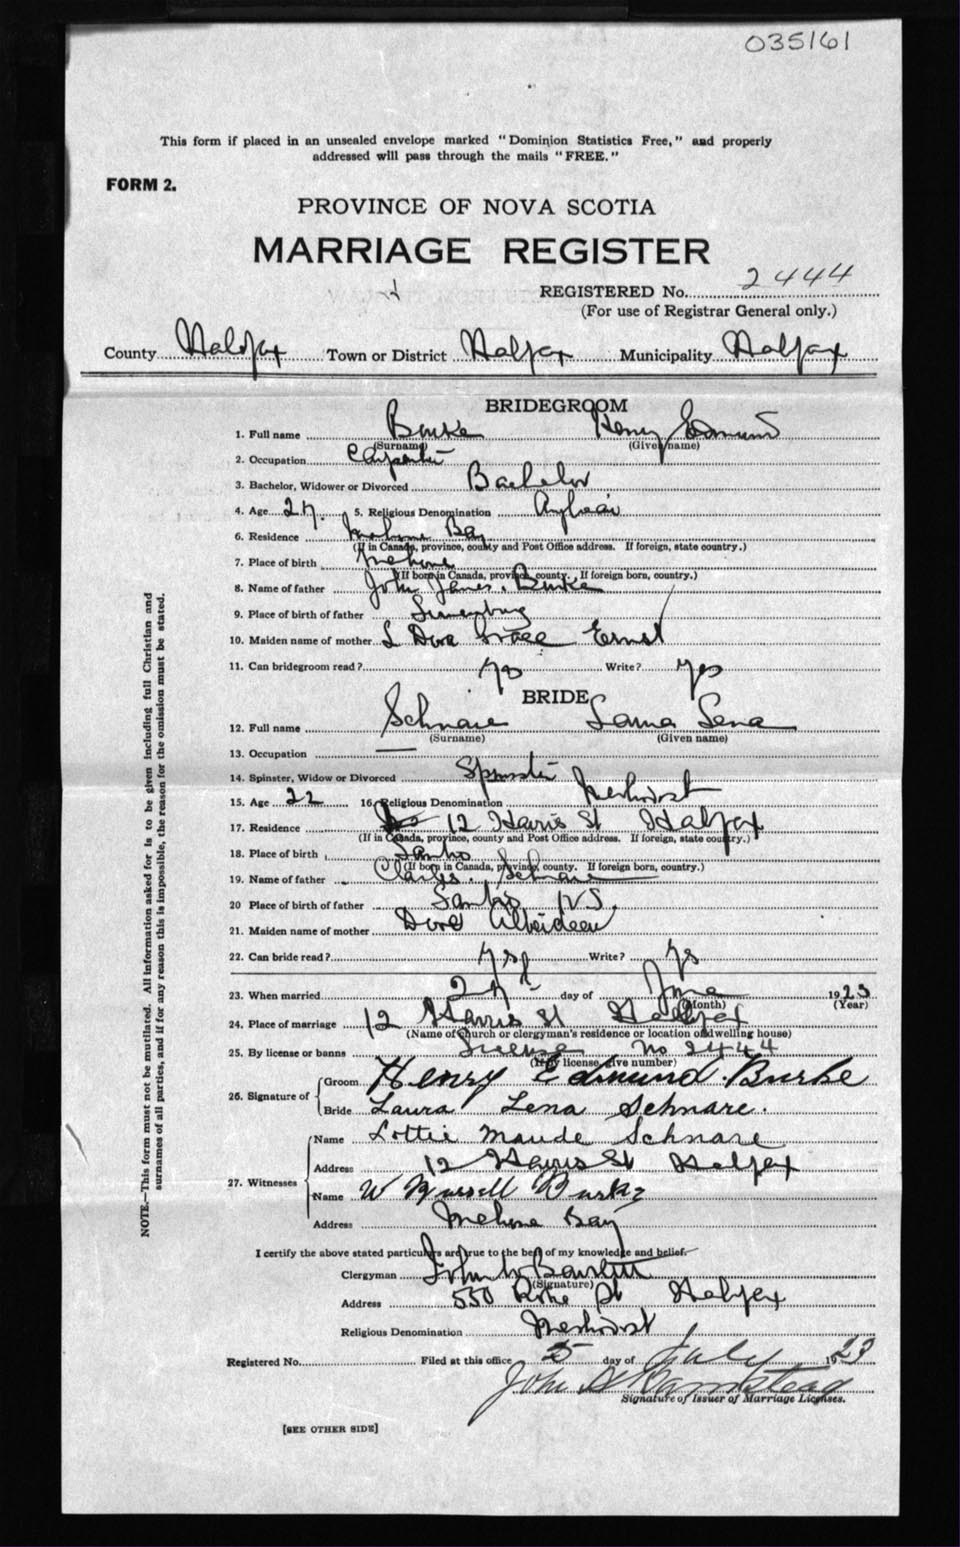 035161
This form if placed in an unsealed envelope marked "Dominion Statistics Free," and properly
addressed will pass through the mails "FREE."
FORM 2.
PROVINCE OF NOVA SCOTIA
MARRIAGE REGISTER
REGISTERED No. 2444
(For use of Registrar General only.)
County Halifax Town or District Halifax Municipality Halifax
BRIDEGROOM
1. Full name Burke Henry Edmund
(Surname) (Given name)
2. Occupation Carpenter
3. Bachelor, Widower or Divorced Bachelor
4. Age 27. 5. Religious Denomination Anglican
6. Residence Mahone Bay
(If in Canada, province, county and Post Office address. If foreign, state country.)
7. Place of birth Mahone
(If born in Canada, province, county. If foreign born, country.)
8. Name of father John James Burke
9. Place of birth of father Lunenburg
10. Maiden name of mother Grace Ernst
11. Can bridegroom read? yes Write? yes
BRIDE
12. Full name Schnare Laura Lena
(Surname) (Given name)
13. Occupation —
14. Spinster, Widow or Divorced Spinster
15. Age 22 16. Religious Denomination Methodist
17. Residence 12 Harris St Halifax
(If in Canada, province, county and Post Office address. If foreign, state country.)
18. Place of birth Sambro
(If born in Canada, province, county. If foreign born, country.)
19. Name of father Charles Schnare
20 Place of birth of father Sambro N.S.
21. Maiden name of mother
22. Can bride read? yes Write? yes
23. When married 27 day of June 1923
(Month) (Year)
24. Place of marriage 12 Harris St Halifax
(Name of church or clergyman's residence or location of dwelling house)
25. By license or banns License No 2444
(If by license, give number)
26. Signature of Groom Henry Edmund Burke
Bride Laura Lena Schnare.
27. Witnesses Name Lottie Maude Schnare
Address 12 Harris St Halifax
Name W Russell Burke
Address Mahone Bay
I certify the above stated particulars are true to the best of my knowledge and belief.
Clergyman John W
(Signature)
Address 550 St Halifax
Religious Denomination Methodist
Registered No. Filed at this office 5 day of July 1923
John
Signature of Issuer of Marriage Licenses.
[SEE OTHER SIDE]
NOTE.—This form must not be mutilated. All information asked for is to be given including full Christian and
surnames of all parties, and if for any reason this is impossible, the reason for the omission must be stated.